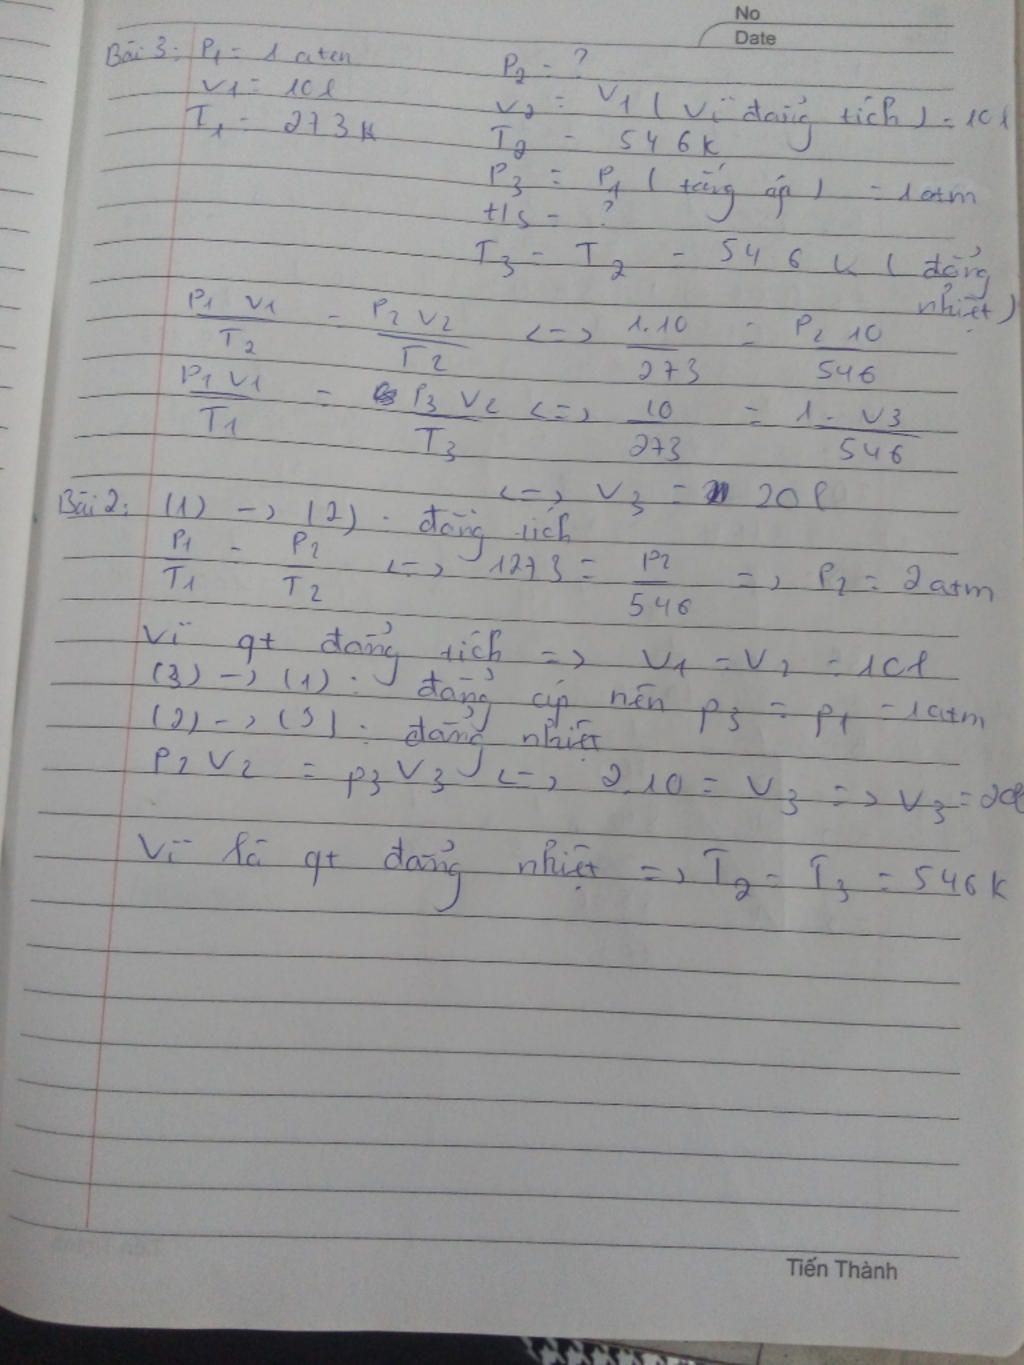 No
Date
Bài 3: P1 = 1 atm P2 = ?
V1 = 10l V2 = V1 ( Vì đẳng tích ) = 10l
T1 = 273K T2 = 546K
P3 = P1 ( đẳng áp ) = 1atm
= ?
T3 = T2 = 546 K ( đẳng
nhiệt )
P1 V1 / T2 = P2 V2 / T2 <=> 1.10 / 273 = P2 10 / 546
P1 V1 / T1 = P3 V2 / T3 <=> 10 / 273 = 1. V3 / 546
<=> V3 = 20l
Bài 2: (1) -> (2) : đẳng tích
P1 / T1 = P2 / T2 <=> 1273 = P2 / 546 => P2 = 2atm
Vì qt đẳng tích => V1 = V2 = 10l
(3) -> (1) : đẳng áp nên p3 = p1 = 1atm
(2) -> (3) : đẳng nhiệt
P2 V2 = p3 V3 <=> 2.10 = V3 => V3 = 20l
Vì là qt đẳng nhiệt => T2 = T3 = 546K
Tiến Thành